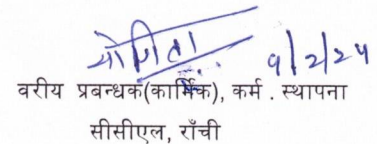 योगिता 9/2/24
वरीय प्रबन्धक(कार्मिक), कर्म . स्थापना
सीसीएल, राँची